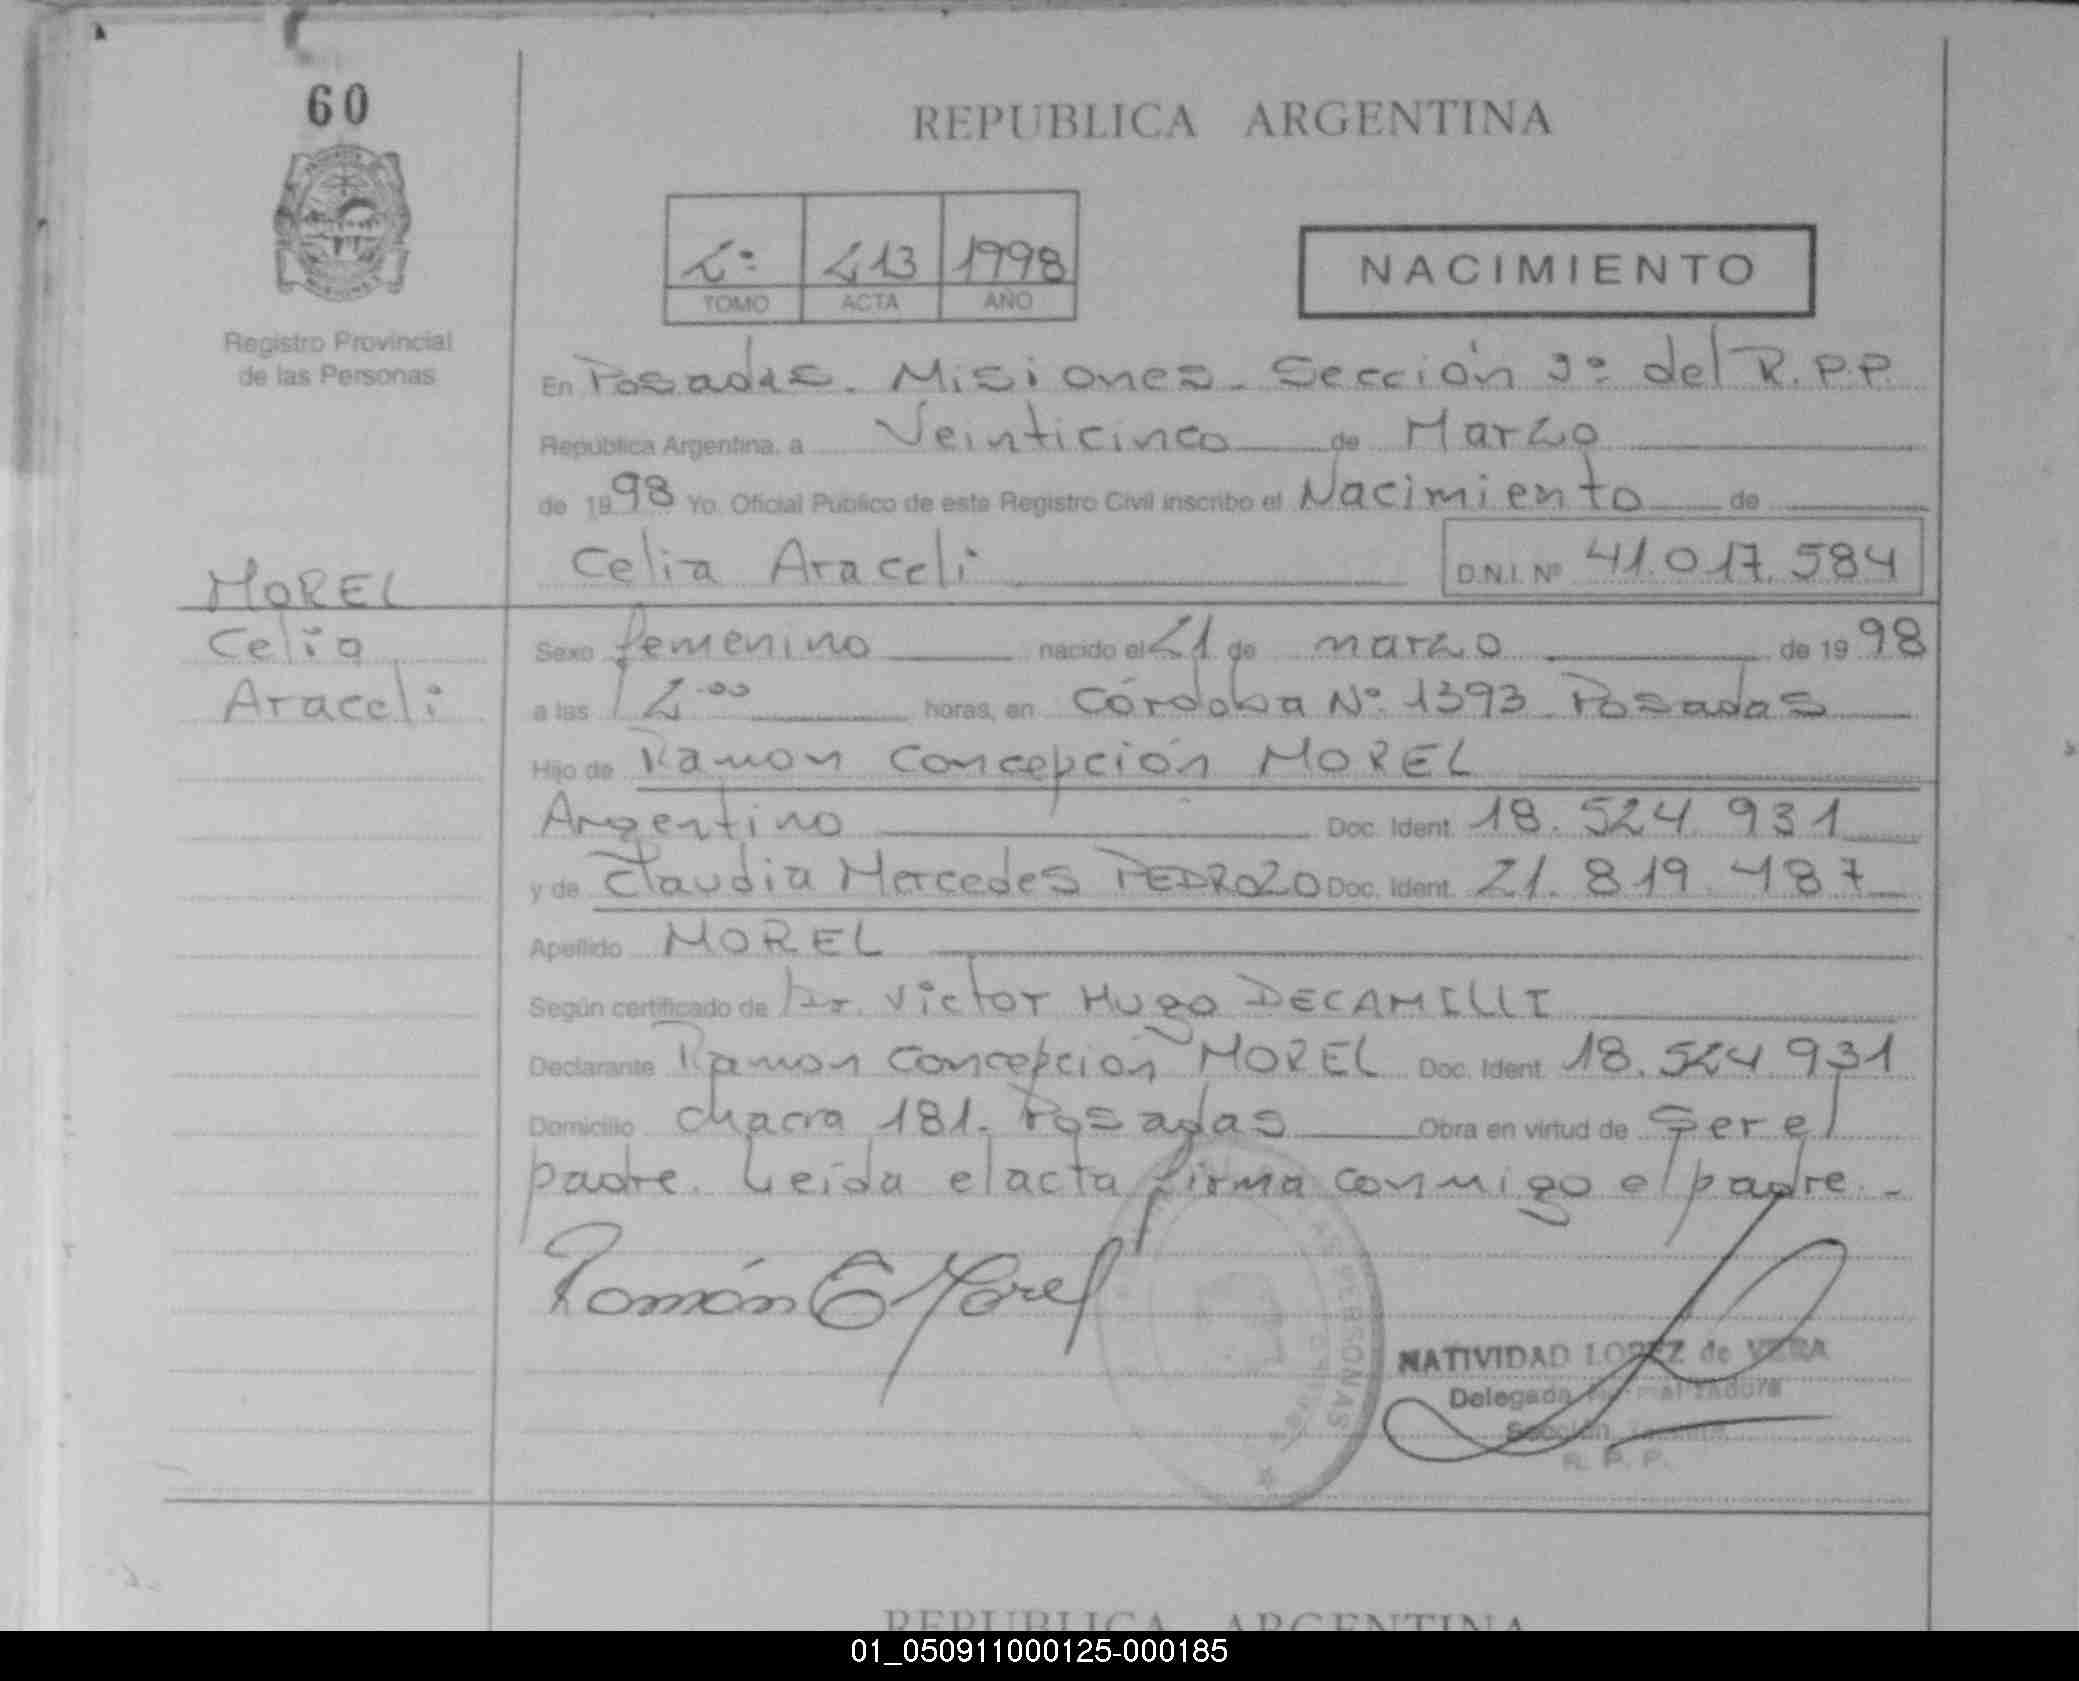 60
REPUBLICA ARGENTINA
2º 213 1998
TOMO ACTA AÑO
NACIMIENTO
Registro Provincial
de las Personas
En Posadas. Misiones. Sección 3º del R.P.P.
República Argentina, a Veinticinco de Marzo
de 1998 Yo. Oficial Público de este Registro Civil inscribo el Nacimiento de
Celia Araceli D.N.I. Nº 41.017.584
MOREL
Celia
Araceli
Sexo femenino nacido el 21 de marzo de 1998
a las 12.00 horas, en Córdoba Nº 1393 Posadas
Hijo de Ramon Concepción MOREL
Argentino Doc. Ident. 18.524.931
y de Claudia Mercedes PEDROZO Doc. Ident. 21.819.487
Apellido MOREL
Según certificado de Dr. Victor Hugo DECAMILLI
Declarante Ramon Concepción MOREL Doc. Ident. 18.524.931
Domicilio chacra 181. Posadas Obra en virtud de Ser el
padre. Leída el acta firma conmigo el padre.-
Ramón C Morel
PERSONAS
NATIVIDAD LOPEZ de VERA
Delegada
Sección
R. P. P.
REPUBLICA ARGENTINA
01_050911000125-000185